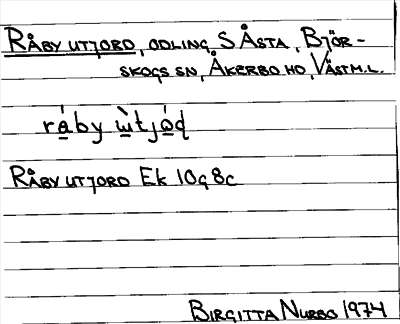 RÅBY UTJORD, ODLING, S ÅSTA, BJÖR-
SKOGS SN, ÅKERBO HD, VÄSTM.L.
rá̱by ẁ̱tjó̱d
RÅBY UTJORD Ek 10g 8c
BIRGITTA NURBO 1974